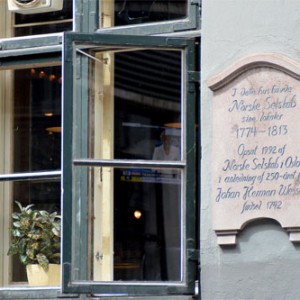 I dette hus havde
Norske Selskab
sine lokaler
1774 - 1813
Opsat 1992 af
Norske Selskab i Oslo
i anledning af 250-året
Johan Herman Wess
fødsel 1742